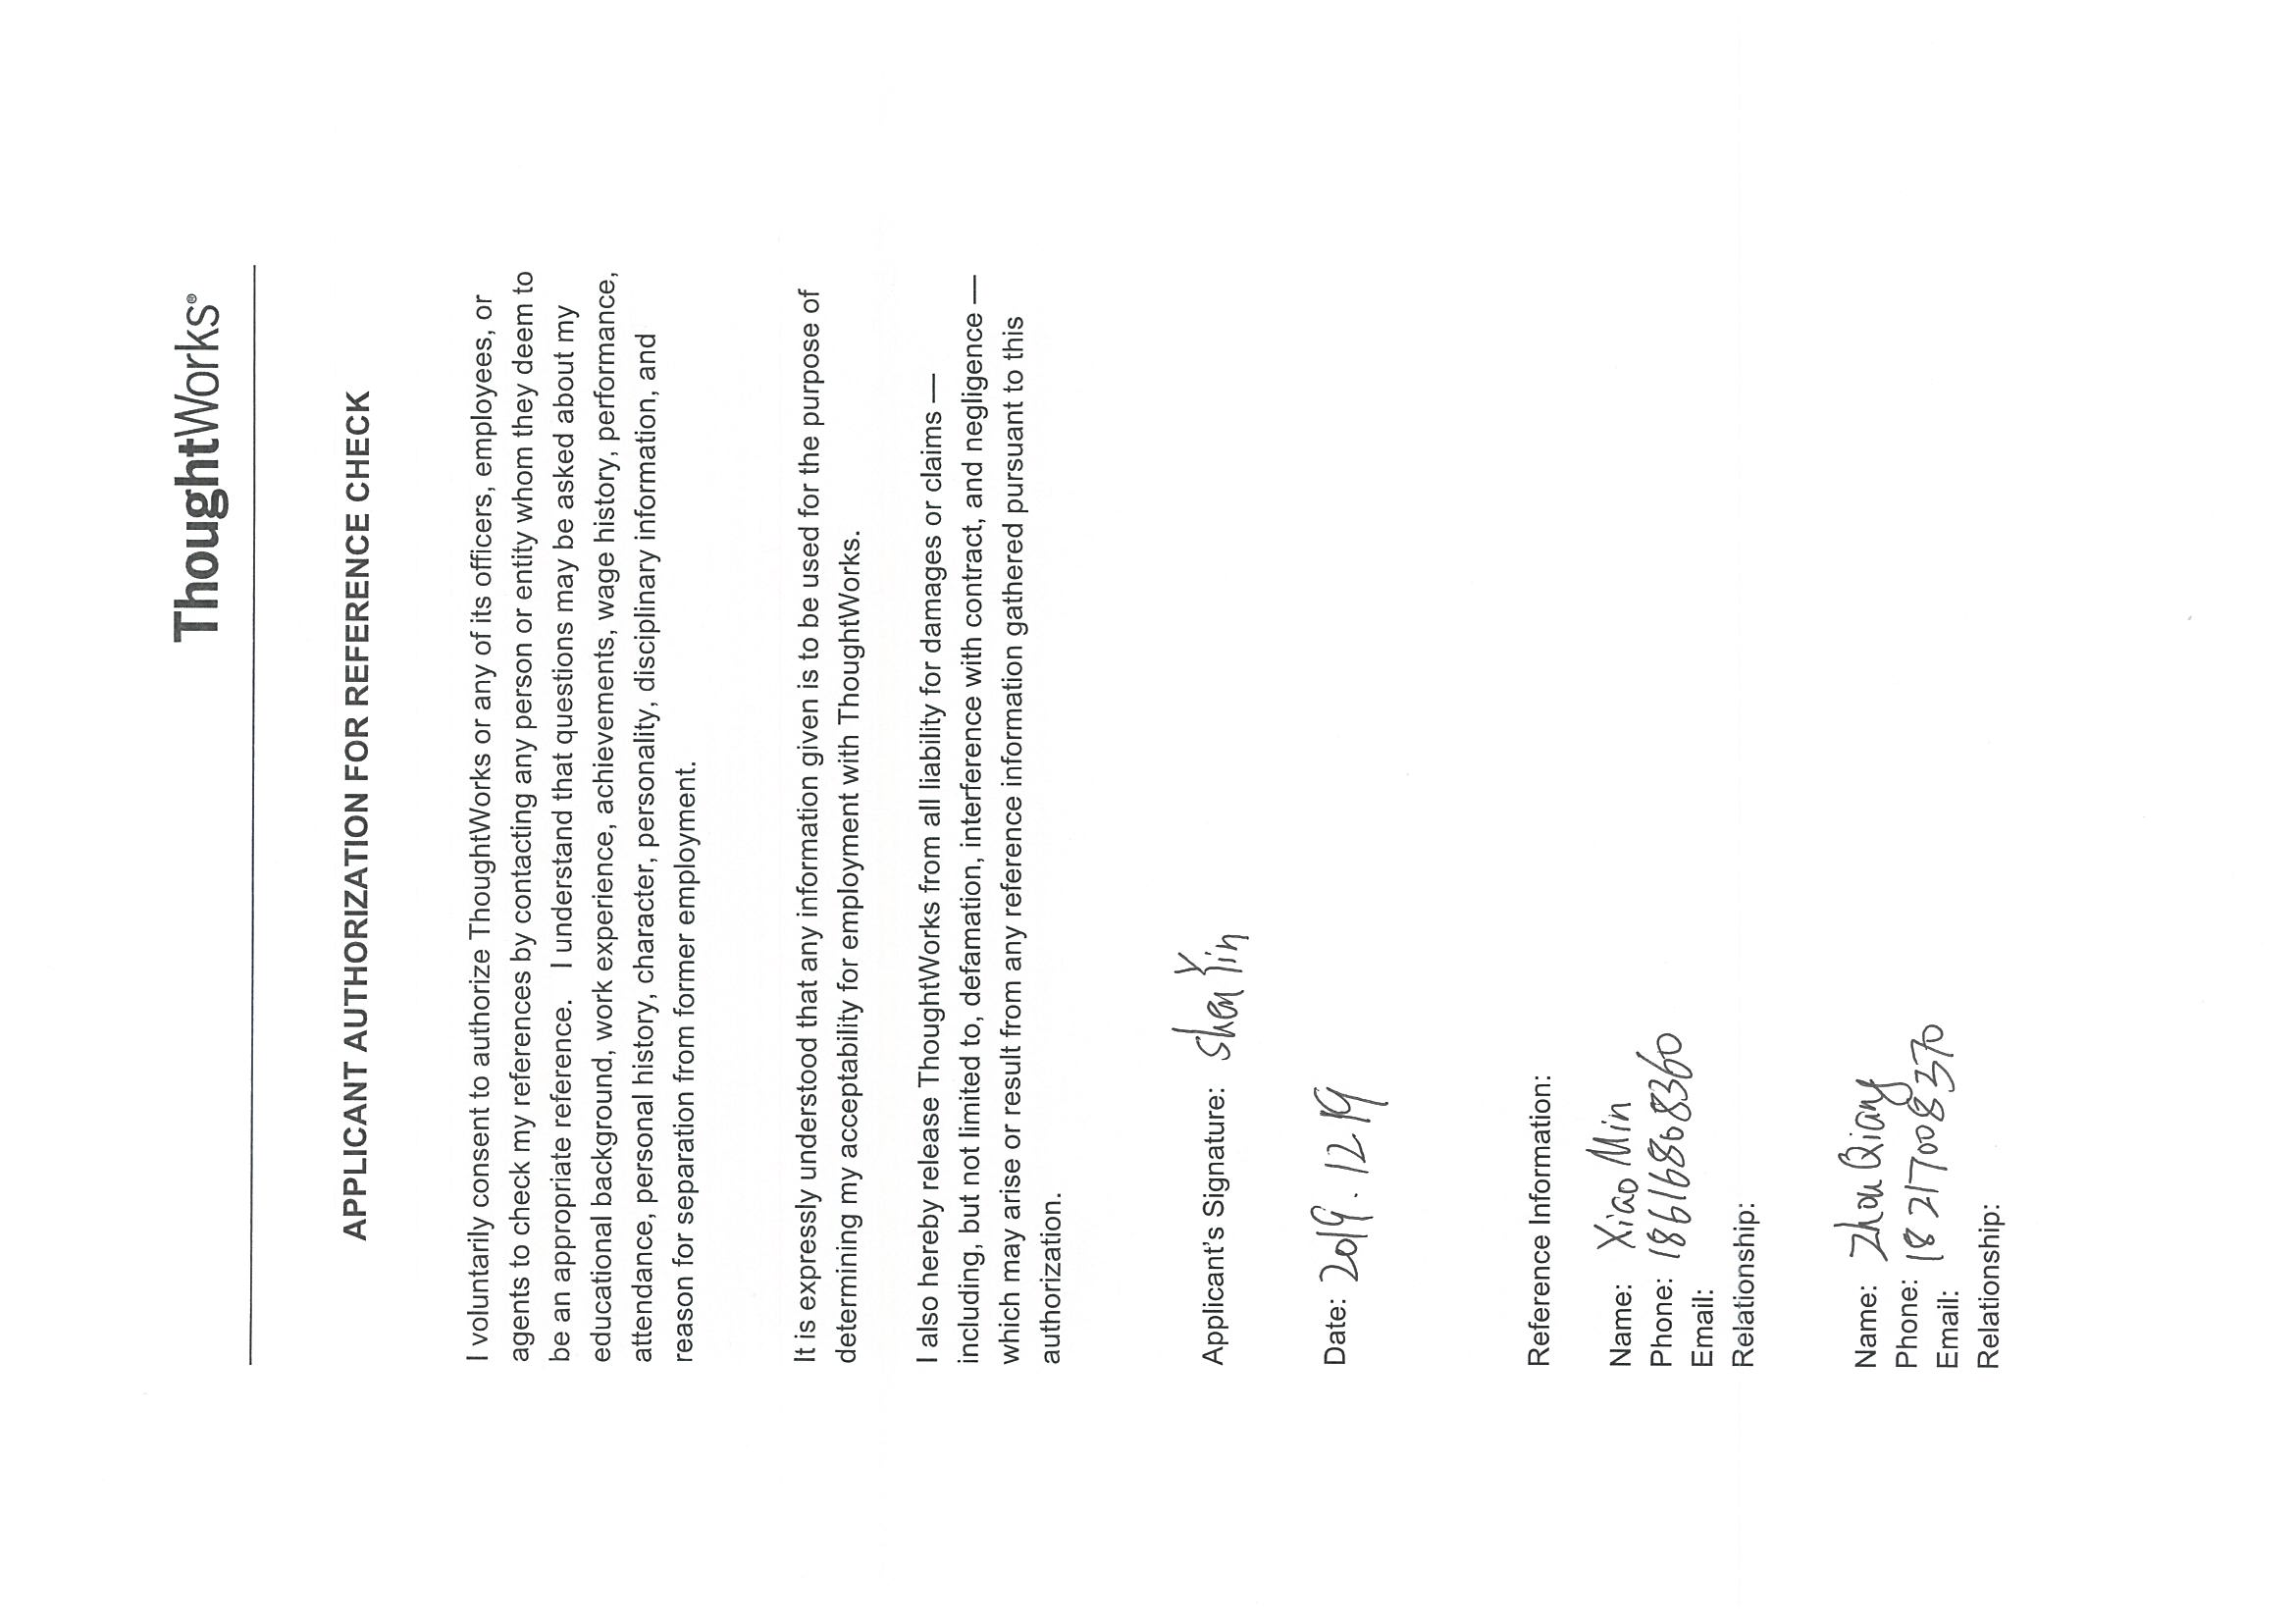 ThoughtWorks®
APPLICANT AUTHORIZATION FOR REFERENCE CHECK
I voluntarily consent to authorize ThoughtWorks or any of its officers, employees, or
agents to check my references by contacting any person or entity whom they deem to
be an appropriate reference. I understand that questions may be asked about my
educational background, work experience, achievements, wage history, performance,
attendance, personal history, character, personality, disciplinary information, and
reason for separation from former employment.
It is expressly understood that any information given is to be used for the purpose of
determining my acceptability for employment with ThoughtWorks.
I also hereby release ThoughtWorks from all liability for damages or claims —
including, but not limited to, defamation, interference with contract, and negligence —
which may arise or result from any reference information gathered pursuant to this
authorization.
Applicant's Signature: Shen Yin
Date: 2019.12.19
Reference Information:
Name: Xiao Min
Phone: 18616868360
Email:
Relationship:
Name: Zhou Qiang
Phone: 18217008370
Email:
Relationship: